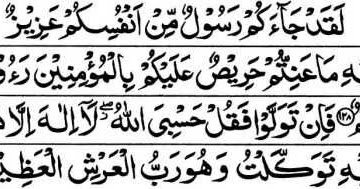 لَقَدْ جَآءَكُمْ رَسُوْلٌ مِّنْ اَنْفُسِكُمْ عَزِيْزٌ
ـهِ مَا عَنِتُّمْ حَرِيْصٌ عَلَيْكُمْ بِالْمُؤْمِنِيْنَ رَءُو
مٌ ﴿۱۲۸﴾ فَاِنْ تَوَلَّوْا فَقُلْ حَسْبِيَ اللّٰهُ ۖ لَاۤ اِلٰهَ اِلَّا
ـهِ تَوَكَّلْتُ وَهُوَ رَبُّ الْعَرْشِ الْعَظِيْـ